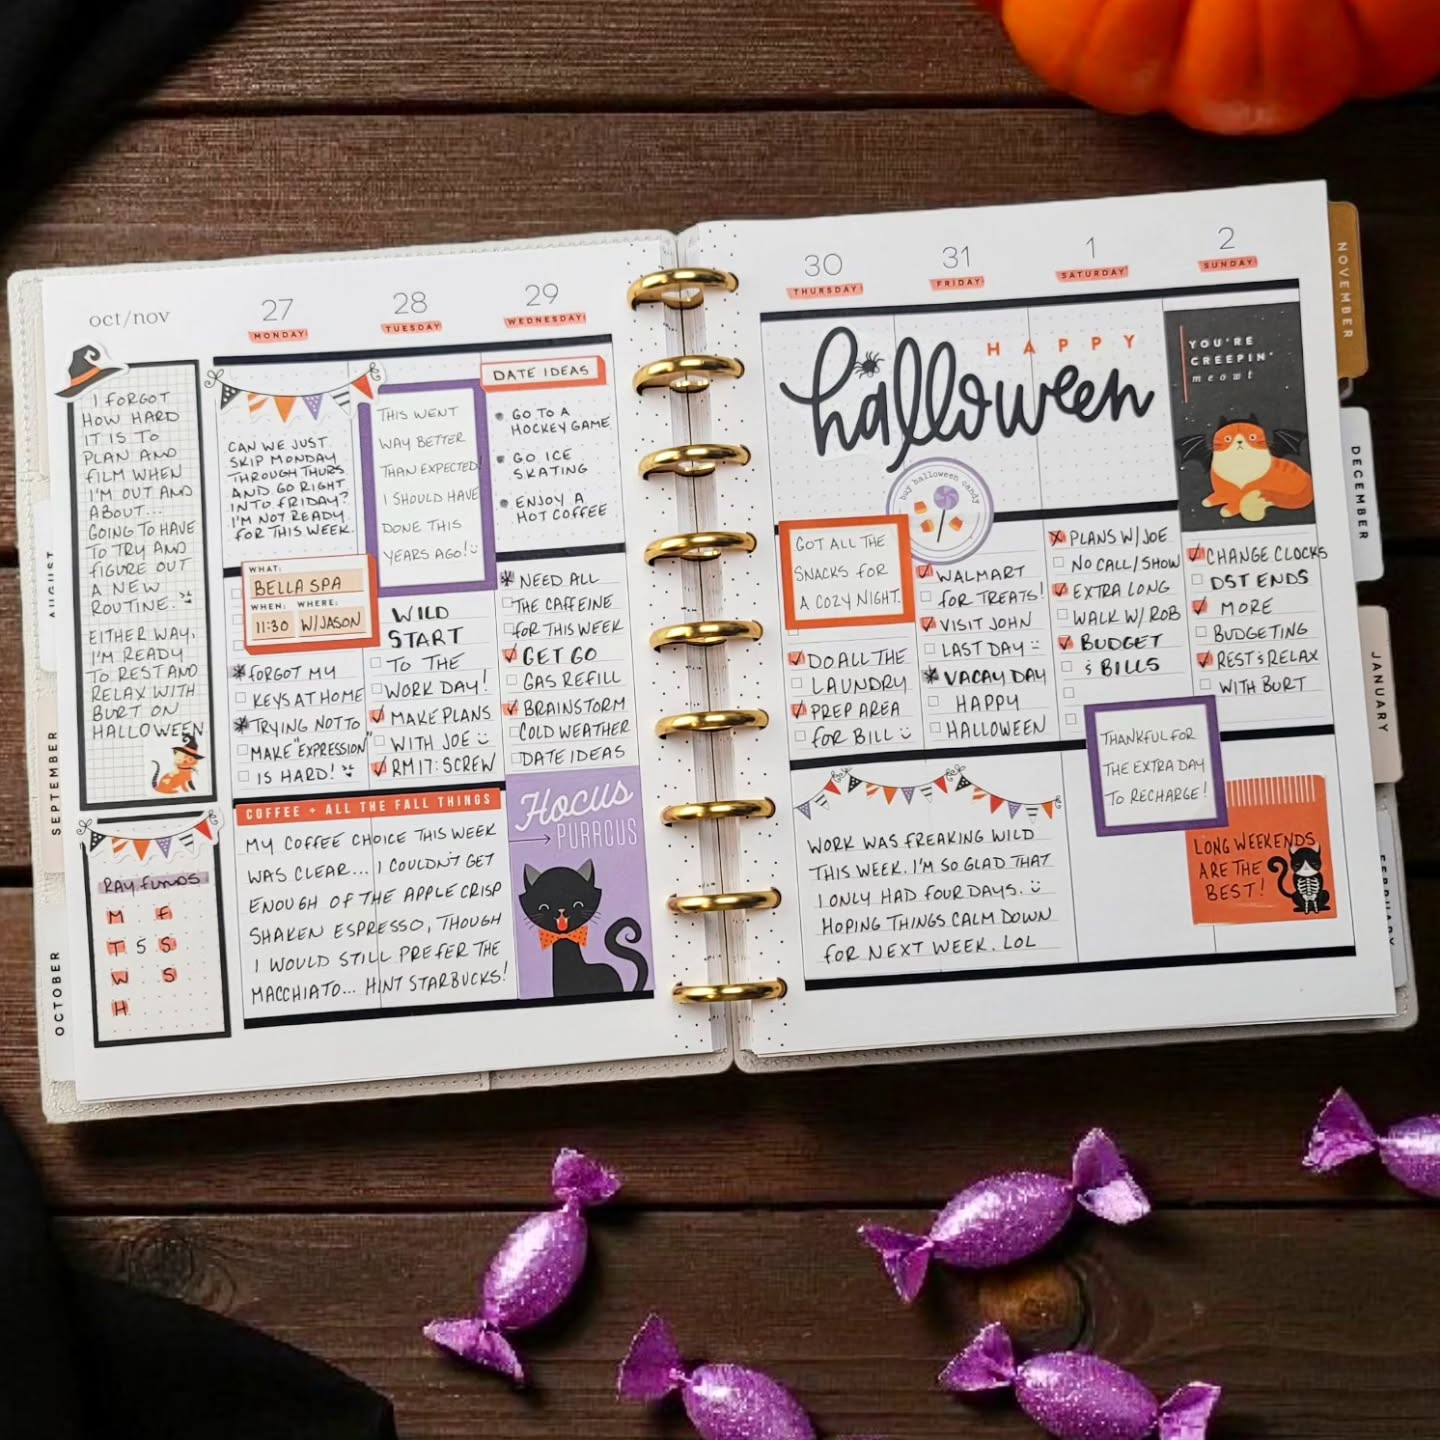 oct/nov
I FORGOT
HOW HARD
IT IS TO
PLAN AND
FILM WHEN
I'M OUT AND
ABOUT...
GOING TO HAVE
TO TRY AND
FIGURE OUT
A NEW
ROUTINE.
EITHER WAY,
I'M READY
TO REST AND
RELAX WITH
BURT ON
HALLOWEEN
RAY FUNDS
M F
T 5 S
W S
H
27
MONDAY
CAN WE JUST
SKIP MONDAY
THROUGH THURS
AND GO RIGHT
INTO FRIDAY?
I'M NOT READY
FOR THIS WEEK.
WHAT:
BELLA SPA
WHEN: WHERE:
11:30 W/JASON
FORGOT MY
KEYS AT HOME
TRYING NOT TO
MAKE "EXPRESSION"
IS HARD!
28
TUESDAY
THIS WENT
WAY BETTER
THAN EXPECTED!
I SHOULD HAVE
DONE THIS
YEARS AGO!
WILD
START
TO THE
WORK DAY!
MAKE PLANS
WITH JOE
RM17: SCREW
29
WEDNESDAY
DATE IDEAS
GO TO A
HOCKEY GAME
GO ICE
SKATING
ENJOY A
HOT COFFEE
NEED ALL
THE CAFFEINE
FOR THIS WEEK
GET GO
GAS REFILL
BRAINSTORM
COLD WEATHER
DATE IDEAS
COFFEE + ALL THE FALL THINGS
MY COFFEE CHOICE THIS WEEK
WAS CLEAR... I COULDN'T GET
ENOUGH OF THE APPLE CRISP
SHAKEN ESPRESSO, THOUGH
I WOULD STILL PREFER THE
MACCHIATO... HINT STARBUCKS!
Hocus
PURRCUS
30
THURSDAY
31
FRIDAY
1
SATURDAY
2
SUNDAY
HAPPY
halloween
buy halloween candy
YOU'RE
CREEPIN'
meowt
GOT ALL THE
SNACKS FOR
A COZY NIGHT.
DO ALL THE
LAUNDRY
PREP AREA
FOR BILL
WALMART
FOR TREATS!
VISIT JOHN
LAST DAY
VACAY DAY
HAPPY
HALLOWEEN
PLANS W/ JOE
NO CALL/SHOW
EXTRA LONG
WALK W/ ROB
BUDGET
& BILLS
CHANGE CLOCKS
DST ENDS
MORE
BUDGETING
REST & RELAX
WITH BURT
WORK WAS FREAKING WILD
THIS WEEK. I'M SO GLAD THAT
I ONLY HAD FOUR DAYS.
HOPING THINGS CALM DOWN
FOR NEXT WEEK. LOL
THANKFUL FOR
THE EXTRA DAY
TO RECHARGE!
LONG WEEKENDS
ARE THE
BEST!
AUGUST
SEPTEMBER
OCTOBER
NOVEMBER
DECEMBER
JANUARY
FEBRUARY